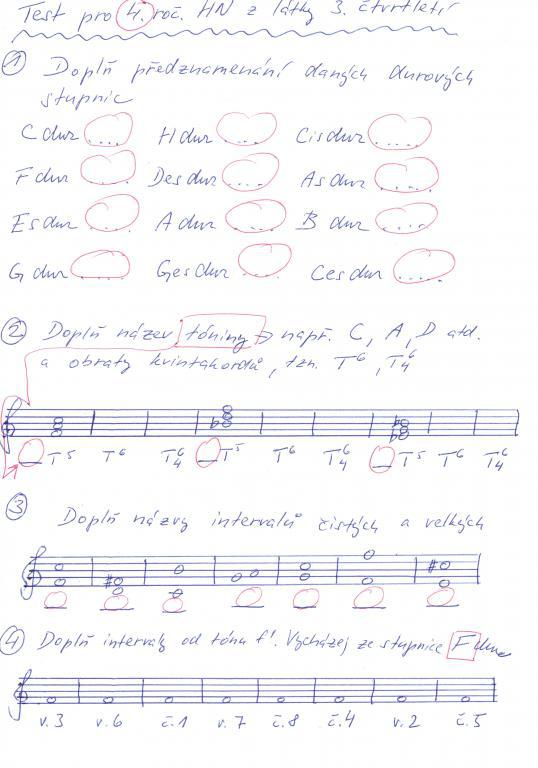 Test pro 4. roč. HN z látky 3. čtvrtletí
1 Doplň předznamenání daných durových
stupnic
C dur .... H dur .... Cis dur ....
F dur .... Des dur .... As dur ....
Es dur .... A dur .... B dur ....
G dur .... Ges dur .... Ces dur ....
2 Doplň název tóniny → např. C, A, D atd.
a obraty kvintakordů, tzn. T6, T6 4
T5 T6 T6 4 T5 T6 T6 4 T5 T6 T6 4
3 Doplň názvy intervalů čistých a velkých
4 Doplň intervaly od tónu f'. Vycházej ze stupnice F dur
v.3 v.6 č.1 v.7 č.8 č.4 v.2 č.5